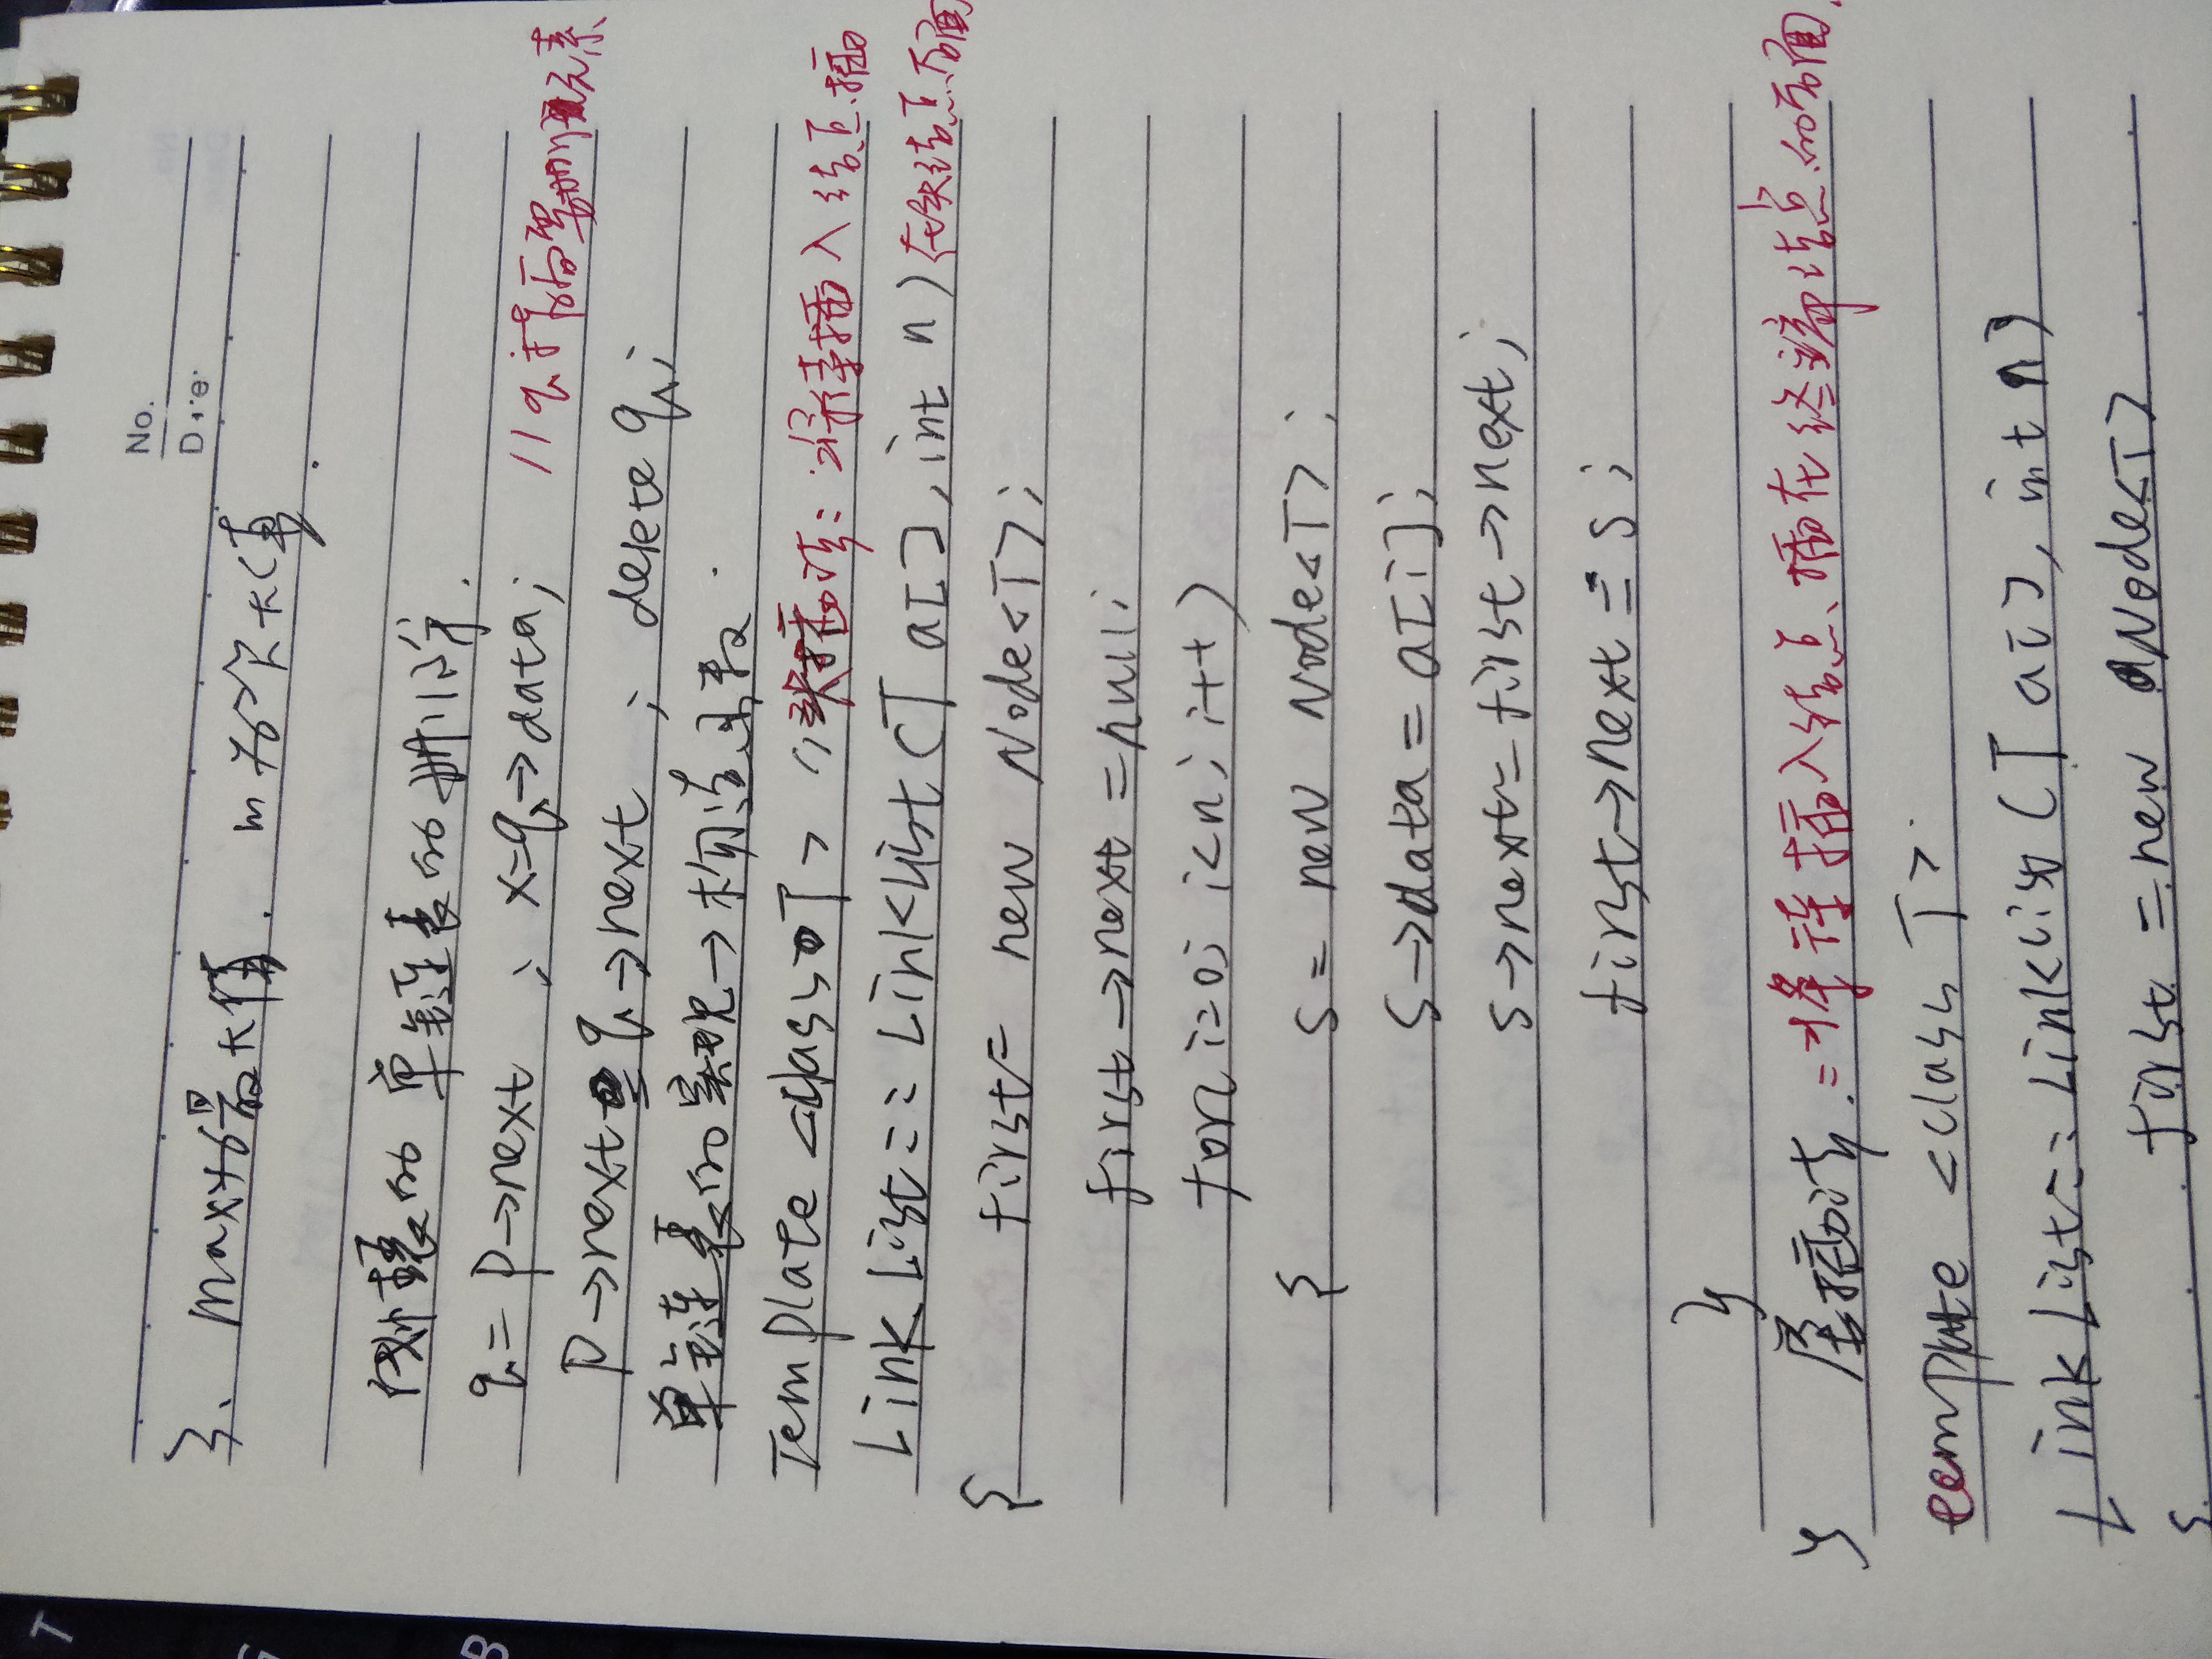 No.
Date
}、max为最大值. m为次大值.
单链表的删除.
q = p->next ; x=q->data; //q指向需删元素
p->next = q->next ; delete q;
单链表的实现->构造函数.
Template <class T> //头插法: 将待插入结点插
LinkList:: LinkList(T a[], int n) 在头结点后面
{
first = new Node<T>;
first->next = null;
for(i=0; i<n; i++)
{ s = new Node<T>;
s->data = a[i];
s->next = first->next;
first->next = s;
}
} 尾插法: =将待插入结点插在终端结点的后面.
template <class T>
LinkList:: LinkList(T a[], int n)
{ first = new Node<T>
T
G
B